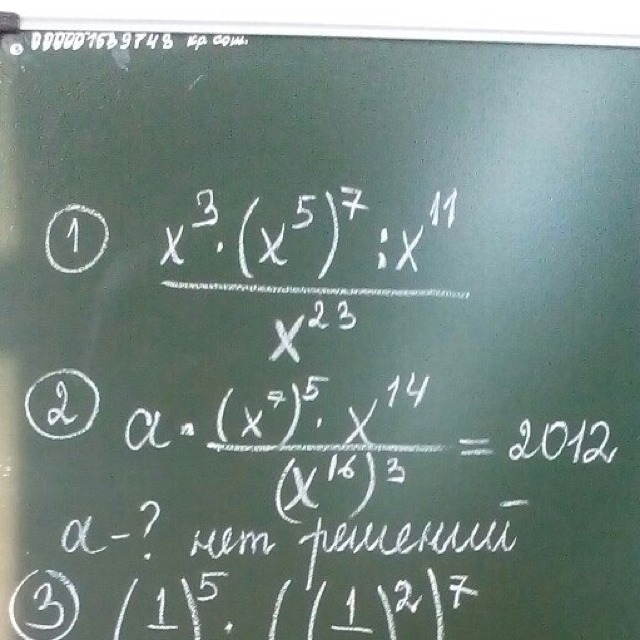 000001639748 кр сот.
① x³·(x⁵)⁷:x¹¹
x²³
② a·(x⁷)⁵·x¹⁴ = 2012
(x¹⁶)³
a-? нет решений
③ (1)⁵·((1)²)⁷